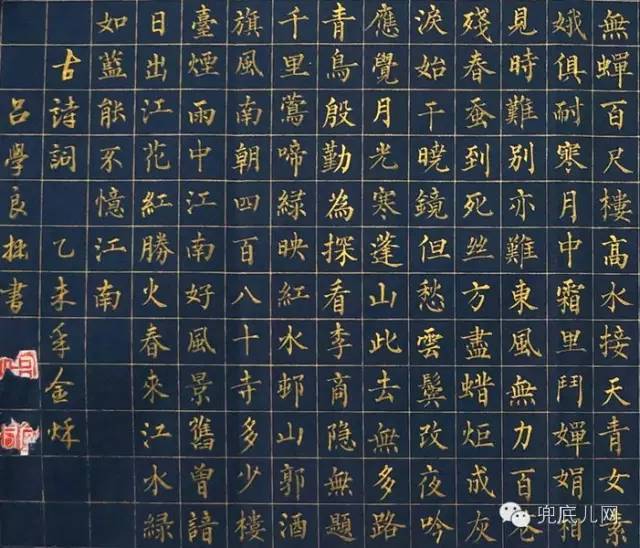 無蟬百尺樓高水接天青女素
娥俱耐寒月中霜里鬥嬋娟相
見時難別亦難東風無力百花
殘春蚕到死丝方盡蜡炬成灰
淚始干曉鏡但愁雲鬢改夜吟
應覺月光寒蓬山此去無多路
青鳥殷勤為探看李商隐無題
千里鶯啼緑映紅水邨山郭酒
旗風南朝四百八十寺多少樓
臺煙雨中江南好風景舊曾諳
日出江花紅勝火春來江水緑
如藍能不憶江南
古詩詞 乙未年金秌
吕學良拙書
兜底儿网